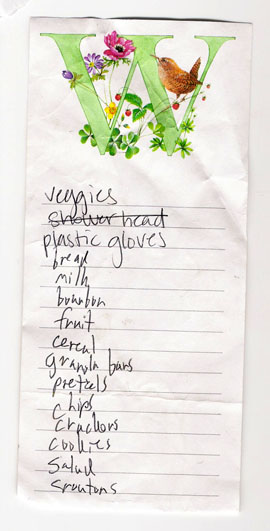 W
veggies
shower head
plastic gloves
bread
milk
bourbon
fruit
cereal
granola bars
pretzels
chips
crackers
cookies
salad
croutons